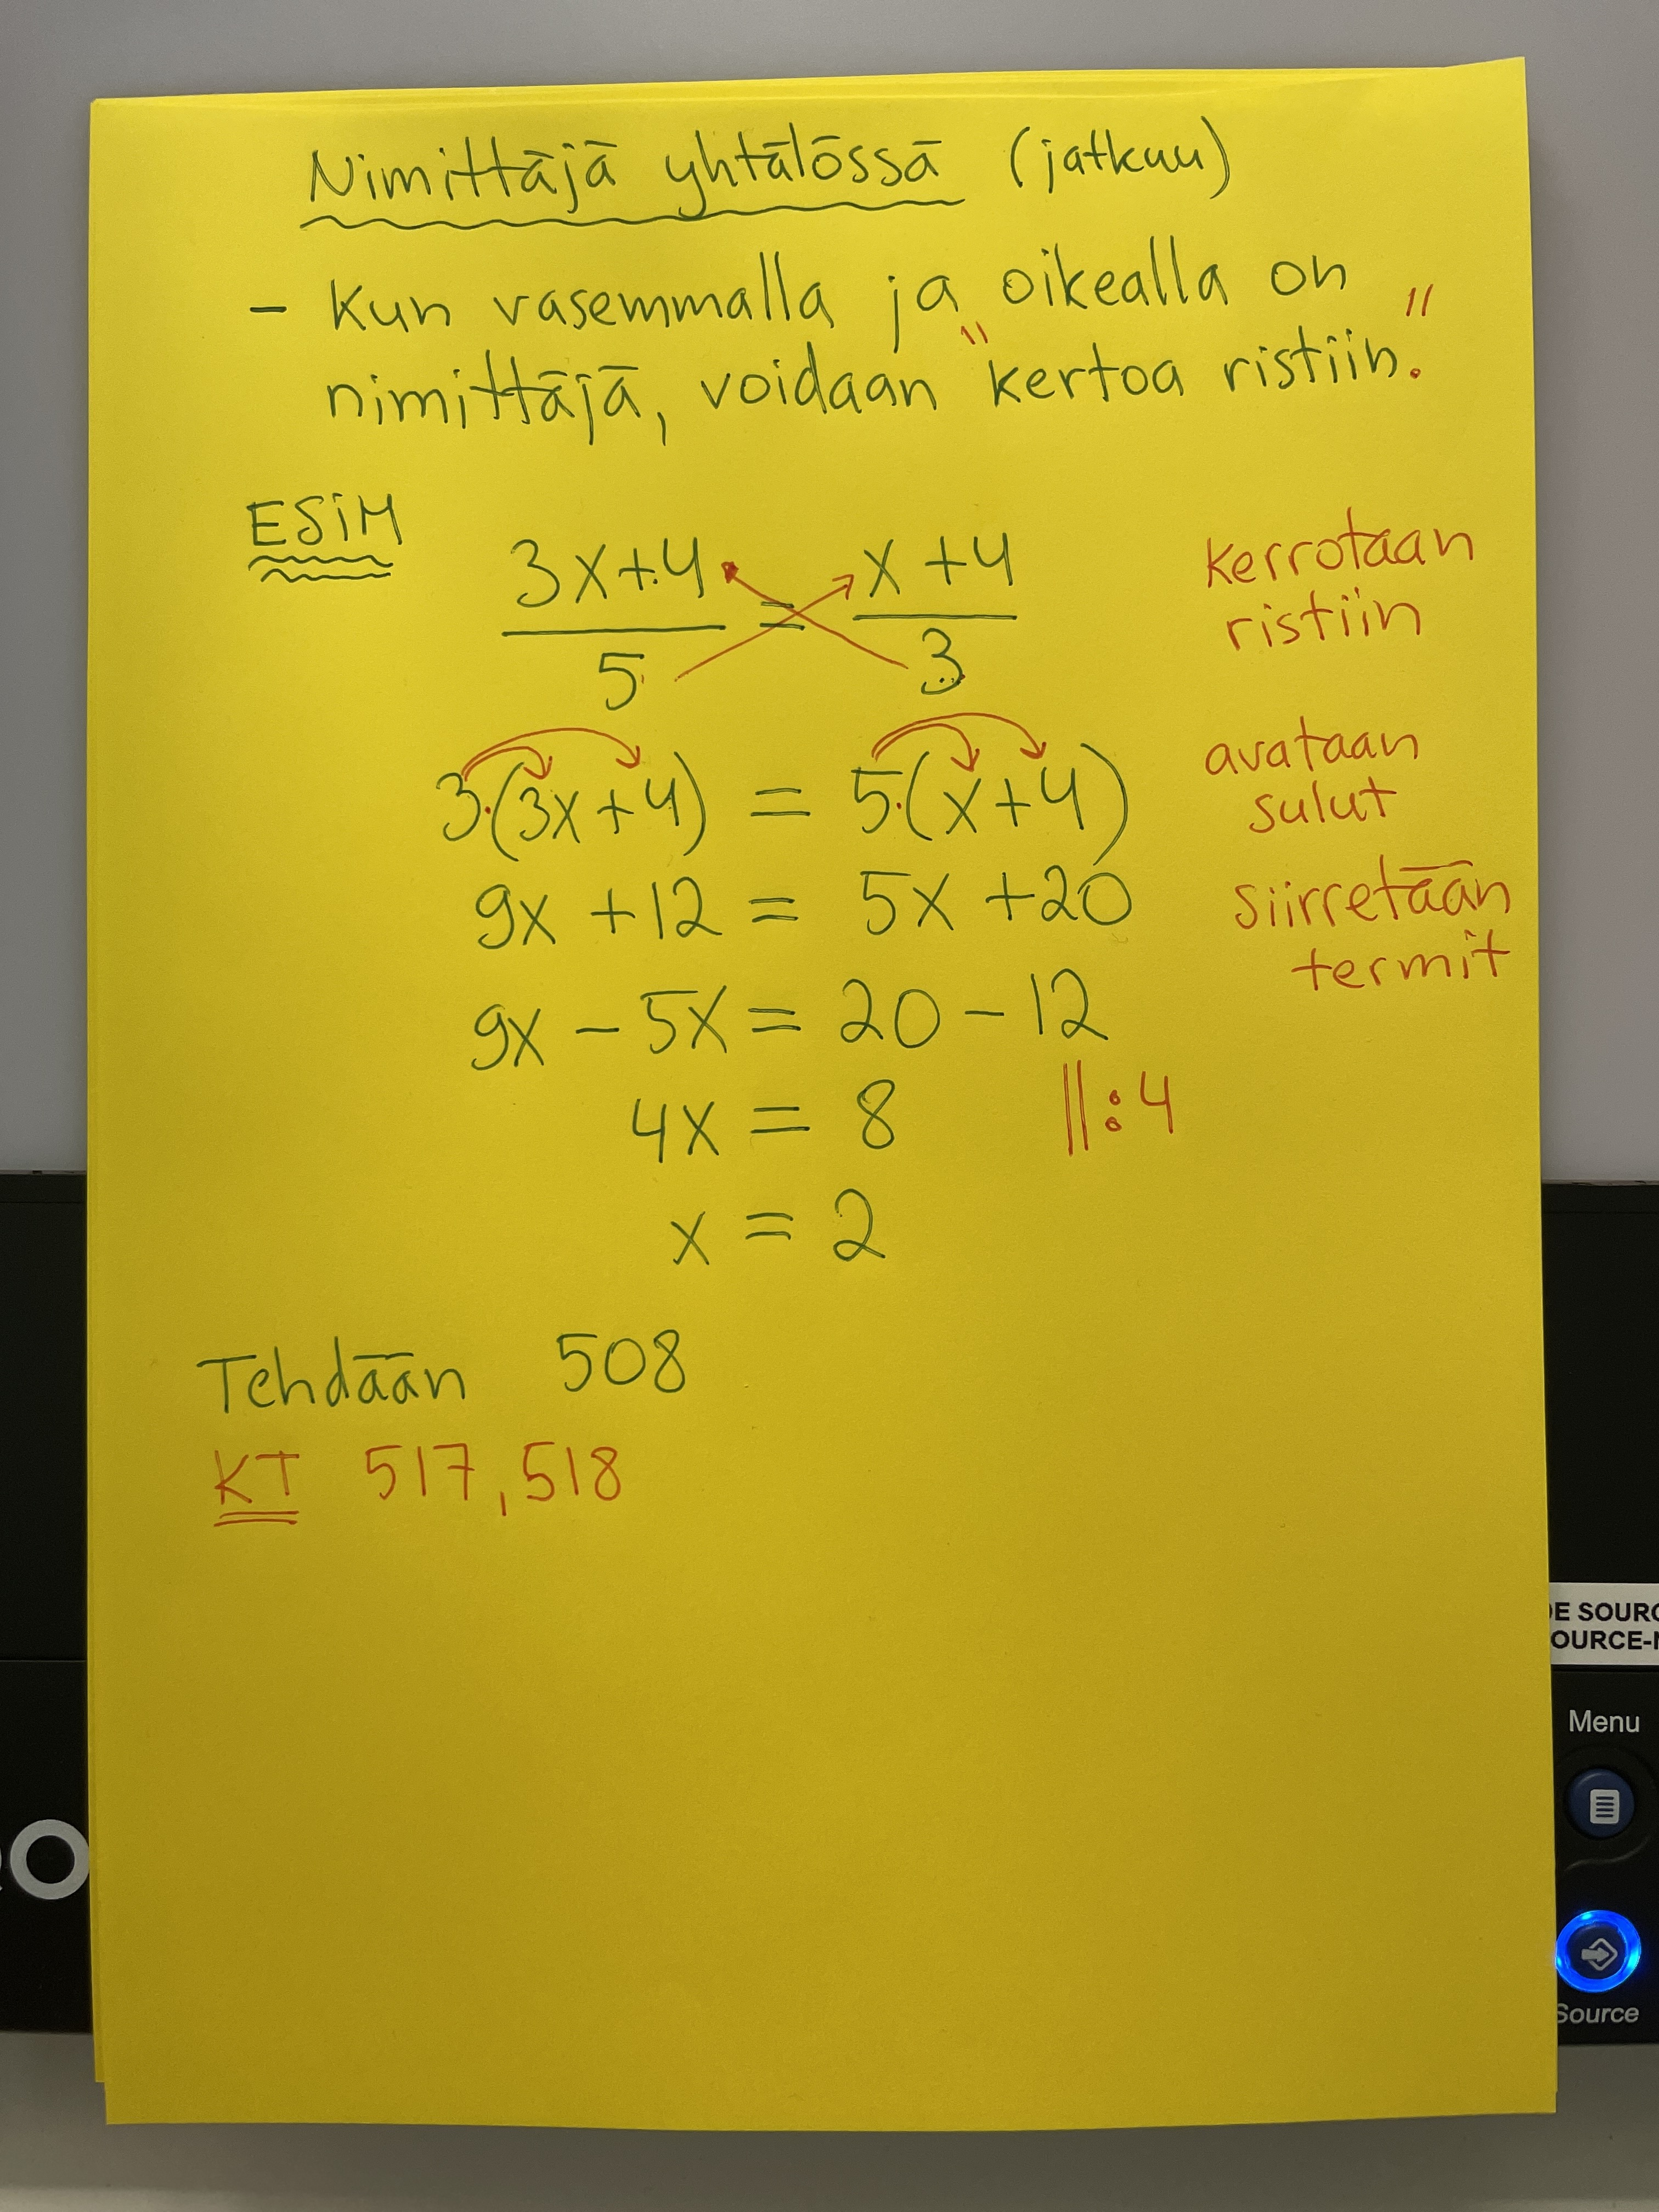 Nimittäjä yhtälössä (jatkuu)
- Kun vasemmalla ja oikealla on
nimittäjä, voidaan "kertoa ristiin."
ESiM
3x+4 = x+4
5 3
kerrotaan
ristiin
3·(3x+4) = 5·(x+4)
avataan
sulut
9x +12 = 5x +20
siirretään
termit
9x - 5x = 20 - 12
4x = 8 ||:4
x = 2
Tehdään 508
KT 517, 518
DE SOURC
OURCE-N
Menu
Source
O